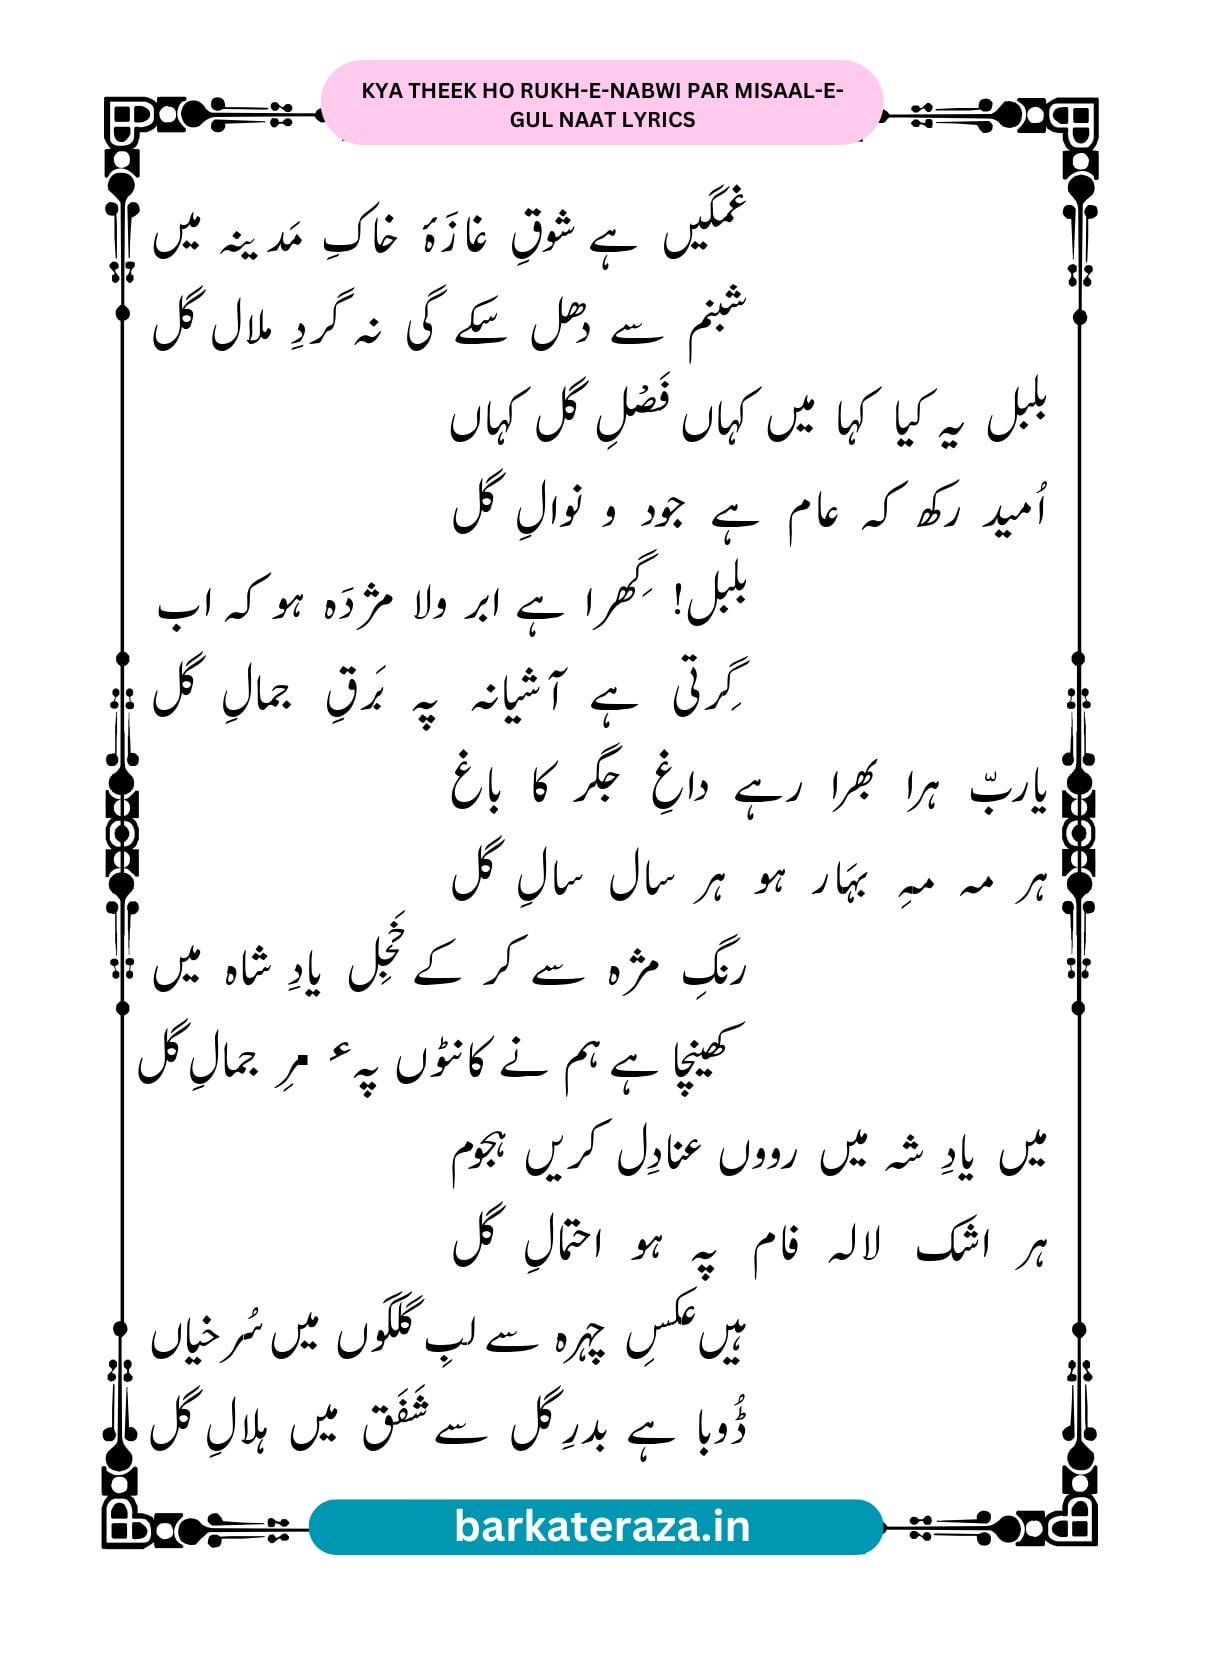 KYA THEEK HO RUKH-E-NABWI PAR MISAAL-E-
GUL NAAT LYRICS
غمگیں ہے شوقِ غازَۂ خاکِ مَدینہ میں
شبنم سے دھل سکے گی نہ گردِ ملال گل
بلبل یہ کیا کہا میں کہاں فَصْلِ گل کہاں
اُمید رکھ کہ عام ہے جود و نوالِ گل
بلبل! گِھرا ہے ابر ولا مژدَہ ہو کہ اب
گِرتی ہے آشیانہ پہ بَرقِ جمالِ گل
یاربّ ہرا بھرا رہے داغِ جگر کا باغ
ہر مہ مہِ بہَار ہو ہر سال سالِ گل
رنگِ مژہ سے کر کے خَجِل یادِ شاہ میں
کھینچا ہے ہم نے کانٹوں پہ جمالِ گل
میں یادِ شہ میں رووں عنادِل کریں ہجوم
ہر اشک لالہ فام پہ ہو احتمالِ گل
ہیں عکسِ چہرہ سے لبِ گُلگَوں میں سُرخیاں
ڈُوبا ہے بدرِ گل سے شَفَق میں ہلالِ گل
barkateraza.in